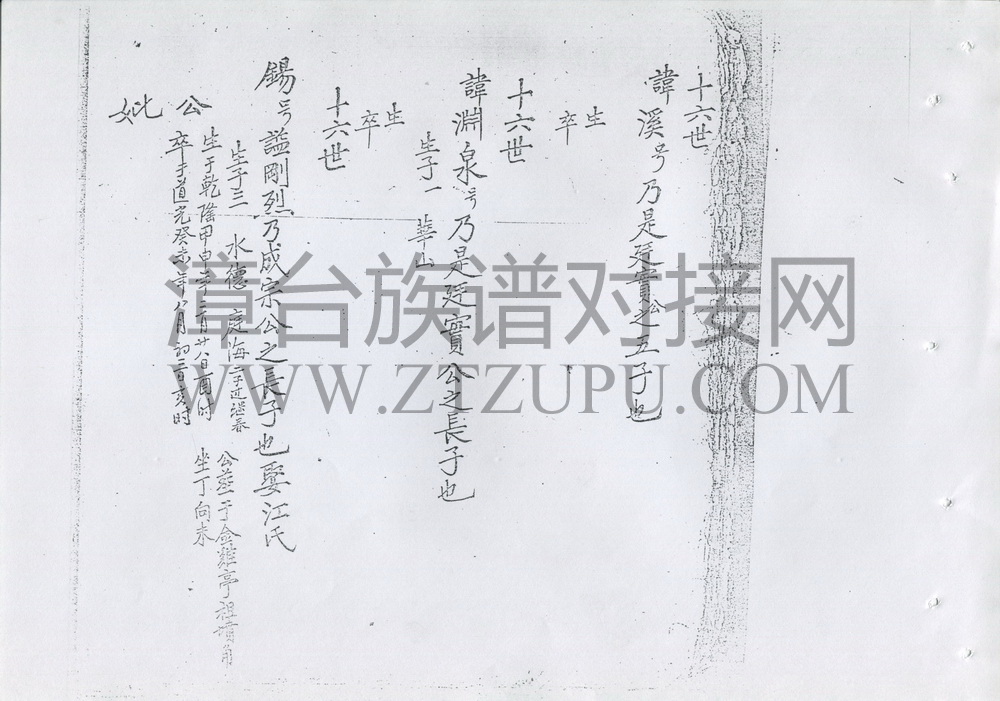 十六世
諱溪号乃是廷實公之五子也
生
卒
十六世
諱淵泉号乃是廷實公之長子也
生子一 華山
生
卒
十六世
錫号謚剛烈乃成宗公之長子也娶江氏
生子三 水德 庭海
公 生于乾隆甲申年二月廿八日酉时
卒于道光癸未年八月初二日亥时
公葬于金雞亭祖墳角
坐丁向
妣
漳台族谱对接网
WWW.ZTZUPU.COM